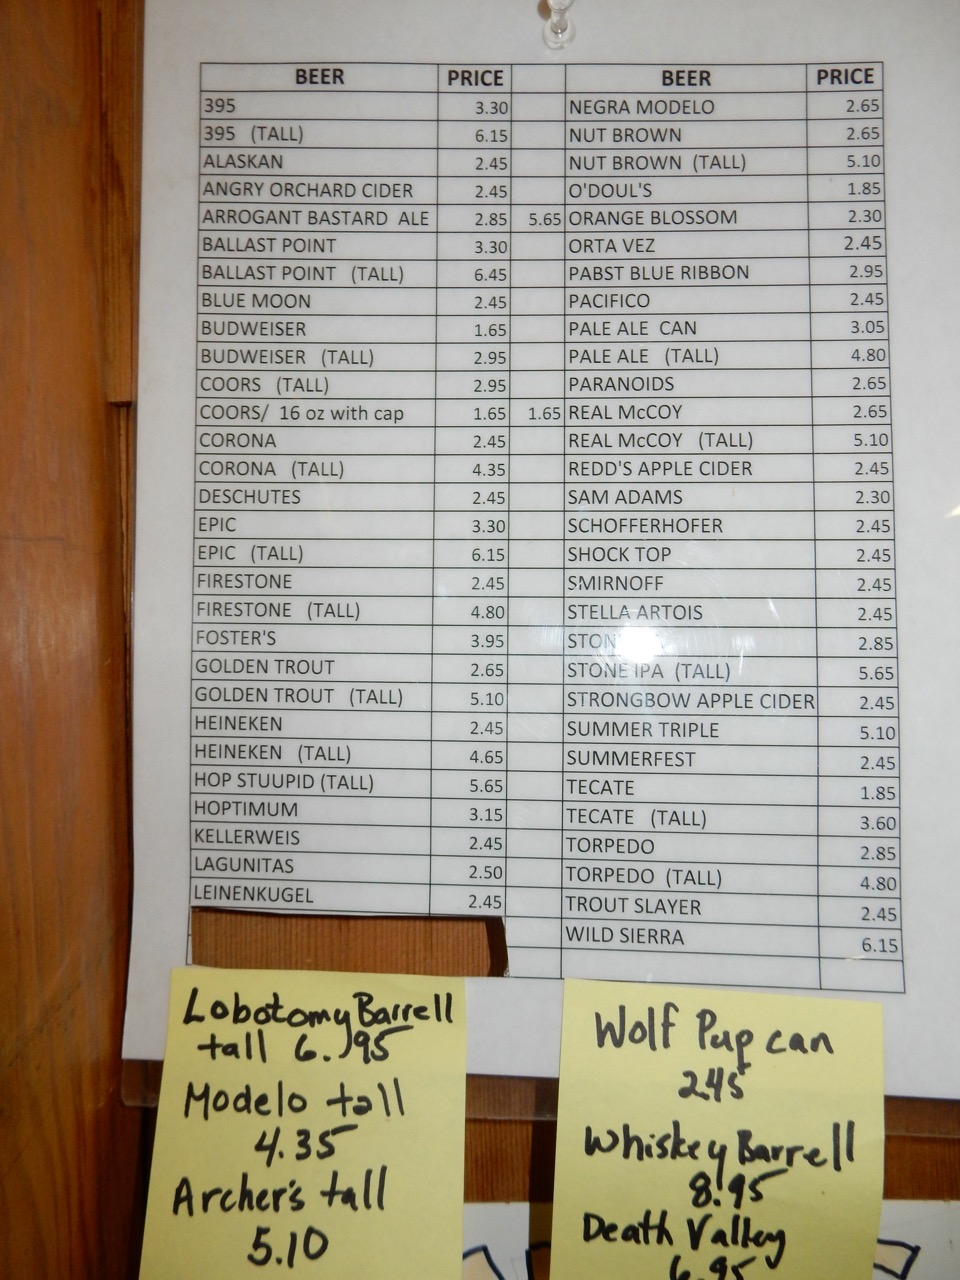 BEER PRICE BEER PRICE
395 3.30 NEGRA MODELO 2.65
395 (TALL) 6.15 NUT BROWN 2.65
ALASKAN 2.45 NUT BROWN (TALL) 5.10
ANGRY ORCHARD CIDER 2.45 O'DOUL'S 1.85
ARROGANT BASTARD ALE 2.85 5.65 ORANGE BLOSSOM 2.30
BALLAST POINT 3.30 ORTA VEZ 2.45
BALLAST POINT (TALL) 6.45 PABST BLUE RIBBON 2.95
BLUE MOON 2.45 PACIFICO 2.45
BUDWEISER 1.65 PALE ALE CAN 3.05
BUDWEISER (TALL) 2.95 PALE ALE (TALL) 4.80
COORS (TALL) 2.95 PARANOIDS 2.65
COORS/ 16 oz with cap 1.65 1.65 REAL McCOY 2.65
CORONA 2.45 REAL McCOY (TALL) 5.10
CORONA (TALL) 4.35 REDD'S APPLE CIDER 2.45
DESCHUTES 2.45 SAM ADAMS 2.30
EPIC 3.30 SCHOFFERHOFER 2.45
EPIC (TALL) 6.15 SHOCK TOP 2.45
FIRESTONE 2.45 SMIRNOFF 2.45
FIRESTONE (TALL) 4.80 STELLA ARTOIS 2.45
FOSTER'S 3.95 2.85
GOLDEN TROUT 2.65 STONE IPA (TALL) 5.65
GOLDEN TROUT (TALL) 5.10 STRONGBOW APPLE CIDER 2.45
HEINEKEN 2.45 SUMMER TRIPLE 5.10
HEINEKEN (TALL) 4.65 SUMMERFEST 2.45
HOP STUUPID (TALL) 5.65 TECATE 1.85
HOPTIMUM 3.15 TECATE (TALL) 3.60
KELLERWEIS 2.45 TORPEDO 2.85
LAGUNITAS 2.50 TORPEDO (TALL) 4.80
LEINENKUGEL 2.45 TROUT SLAYER 2.45
WILD SIERRA 6.15
Lobotomy Barrell
tall 6.95
Modelo tall
4.35
Archer's tall
5.10
Wolf Pup can
2.45
Whiskey Barrell
8.95
Death Valley
6.95